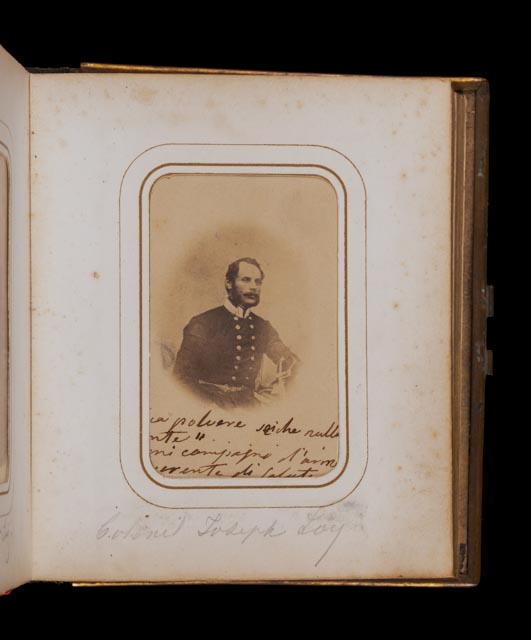 polvere siche nulla
nte".
mi compagno d'arm
di salut
Colonel Joseph Loy